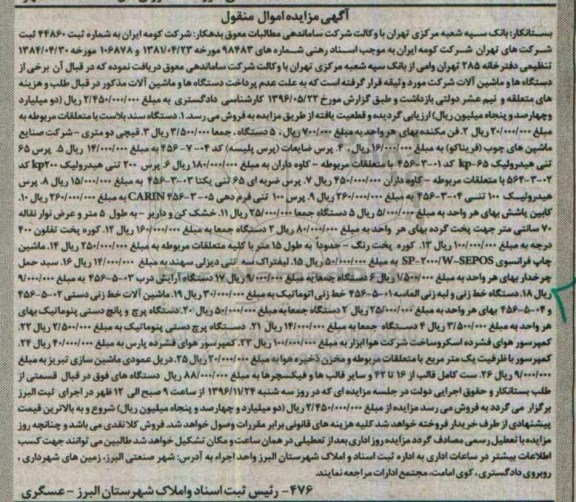 آگهی مزایده اموال منقول
بستانکار: بانک سپه شعبه مرکزی تهران با وکالت شرکت ساماندهی مطالبات معوق بدهکار: شرکت کومه ایران به شماره ثبت ۴۴۸۶۰ ثبت
شرکت های تهران شرکت کومه ایران به موجب اسناد رهنی شماره های ۹۸۴۸۳ مورخه ۱۳۸۱/۰۴/۲۳ و ۱۰۶۸۷۸ مورخه ۱۳۸۴/۰۴/۳۰
تنظیمی دفترخانه ۲۸۵ تهران وامی از بانک سپه شعبه مرکزی تهران با وکالت شرکت ساماندهی معوق دریافت نموده که در قبال آن برخی از
دستگاه ها و ماشین آلات شرکت مورد وثیقه قرار گرفته است که به علت عدم پرداخت دستگاه ها و ماشین آلات مذکور در قبال طلب و هزینه
های متعلقه و نیم عشر دولتی بازداشت و طبق گزارش مورخ ۱۳۹۶/۰۵/۲۳ کارشناسی دادگستری به مبلغ ۲/۴۵۰/۰۰۰/۰۰۰ ریال (دو میلیارد
و چهارصد و پنجاه میلیون ریال) ارزیابی گردیده و قطعیت یافته از طریق مزایده به فروش می رسد. ۱. دستگاه سند بلاست با متعلقات مربوطه به
مبلغ ۲۰/۰۰۰/۰۰۰ ریال ۲. فن مکنده بهای هر واحد به مبلغ ۷۰۰/۰۰۰ ریال، ۵ دستگاه، جمعا ۳/۵۰۰/۰۰۰ ریال ۳. قیچی دو متری - شرکت صنایع
ماشین های چوب (فریتاکو) به مبلغ ۱۶/۰۰۰/۰۰۰ ریال، ۴. پرس ضایعات (پرس پلیسه) کد ۰۴-۷-۴۵۶ به مبلغ ۱۴/۰۰۰/۰۰۰ ریال ۵. پرس ۶۵
تنی هیدرولیک kp-۶۵ کد ۰۱-۳-۴۵۶ با متعلقات مربوطه - کاوه داران به مبلغ ۱۸۰/۰۰۰/۰۰۰ ریال ۶. پرس ۲۰۰ تنی هیدرولیک kp۲۰۰ کد
۰۲-۳-۵۶۴ با متعلقات مربوطه - کاوه داران ۴۵۰/۰۰۰/۰۰۰ ریال ۷. پرس ضربه ای ۶۵ تنی یکتا ۰۳-۳-۴۵۶ به مبلغ ۱۵/۰۰۰/۰۰۰ ریال ۸. پرس
هیدرولیک ۱۰۰ تنسی ۰۴-۳-۴۵۶ به مبلغ ۲۶۰/۰۰۰/۰۰۰ ریال ۹. پرس ۱۰۰ تنی فرم دهی CARIN ۴۵۶-۳-۰۵ به مبلغ ۲۶۰/۰۰۰/۰۰۰ ریال ۱۰.
کابین پاشش بهای هر واحد به مبلغ ۵/۰۰۰/۰۰۰ ریال ۵ دستگاه جمعا ۲۵/۰۰۰/۰۰۰ ریال ۱۱. خشک کن و داریر - به طول ۵ متر و عرض نوار نقاله
۷۰ سانتی متر جهت پخت گرده بهای هر واحد به مبلغ ۸۰/۰۰۰/۰۰۰ ریال ۲ دستگاه جمعا به مبلغ ۱۶۰/۰۰۰/۰۰۰ ریال ۱۲. کوره پخت تفلون ۴۰۰
درجه به مبلغ ۱۰۰/۰۰۰/۰۰۰ ریال ۱۳. کوره پخت رنگ - حدوداً به طول ۱۵ متر با کلیه متعلقات مربوطه به مبلغ ۲۵۰/۰۰۰/۰۰۰ ریال ۱۴. ماشین
چاپ فرانسوی SP-۲۰۰۰/W-SEPOS به مبلغ ۵۰/۰۰۰/۰۰۰ ریال ۱۵. لیفتراک سه تنی دیزلی سهند به مبلغ ۱۴۰/۰۰۰/۰۰۰ ریال ۱۶. سبد حمل
چرخدار بهای هر واحد به مبلغ ۱/۵۰۰/۰۰۰ ریال ۶ دستگاه جمعا به مبلغ ۹/۰۰۰/۰۰۰ ریال ۱۷. دستگاه آرایش درب ۰۳-۵-۴۵۶ به مبلغ ۹/۰۰۰/۰۰۰
ریال ۱۸. دستگاه خط زنی و لبه زنی الماسه ۰۱-۵-۴۵۶ خط زنی اتوماتیک به مبلغ ۳۰/۰۰۰/۰۰۰ ریال ۱۹. ماشین آلات خط زنی دستی ۰۲-۵-۴۵۶
و ۰۴-۵-۴۵۶ بهای هر واحد به مبلغ ۲۵/۰۰۰/۰۰۰ ریال ۲ دستگاه جمعا به مبلغ ۵۰/۰۰۰/۰۰۰ ریال ۲۰. دستگاه پرچ و پانچ دستی پنوماتیک بهای
هر واحد به مبلغ ۳/۵۰۰/۰۰۰ ریال ۴ دستگاه جمعا به مبلغ ۱۴/۰۰۰/۰۰۰ ریال ۲۱. دستگاه پرچ دستی پنوماتیک به مبلغ ۲/۵۰۰/۰۰۰ ریال ۲۲.
کمپرسور هوای فشرده اسکرو ساخت شرکت هوا ابزار به مبلغ ۱۰۰/۰۰۰/۰۰۰ ریال ۲۳. کمپرسور هوای فشرده پارس به مبلغ ۴۰/۰۰۰/۰۰۰ ریال ۲۴.
کمپرسور با ظرفیت یک متر مربع با متعلقات مربوطه و مخزن ذخیره هوا به مبلغ ۲۰/۰۰۰/۰۰۰ ریال ۲۵. دریل عمودی ماشین سازی تبریز به مبلغ
۹/۰۰۰/۰۰۰ ریال ۲۶. ست کامل قالب از ۱۶ تا ۴۲ و سایر قالب ها و فیکسچرها به مبلغ ۸۸/۰۰۰/۰۰۰ ریال دستگاه های فوق در قبال قسمتی از
طلب بستانکار و حقوق اجرایی دولت در جلسه مزایده ای که در روز سه شنبه ۱۳۹۶/۱۱/۲۴ از ساعت ۹ صبح الی ۱۲ ظهر در اجرای ثبت البرز
برگزار می گردد به فروش می رسد مزایده از مبلغ ۲/۴۵۰/۰۰۰/۰۰۰ ریال (دو میلیارد و چهارصد و پنجاه میلیون ریال) شروع و به بالاترین قیمت
پیشنهادی از طرف خریدار فروخته خواهد شد کلیه هزینه های قانونی برابر مقررات وصول خواهد شد. فروش کلا نقدی می باشد و چنانچه روز
مزایده با تعطیل رسمی مصادف گردد مزایده روز اداری بعد از تعطیلی در همان ساعت و مکان تشکیل خواهد شد طالبین می توانند جهت کسب
اطلاعات بیشتر در ساعات اداری به اداره ثبت اسناد و املاک شهرستان البرز واحد اجراء به آدرس: شهر صنعتی البرز، زمین های شهرداری،
روبروی دادگستری، کوی امامت، مجتمع ادارات مراجعه نمایند.
۴۷۶- رئیس ثبت اسناد و املاک شهرستان البرز - عسگری